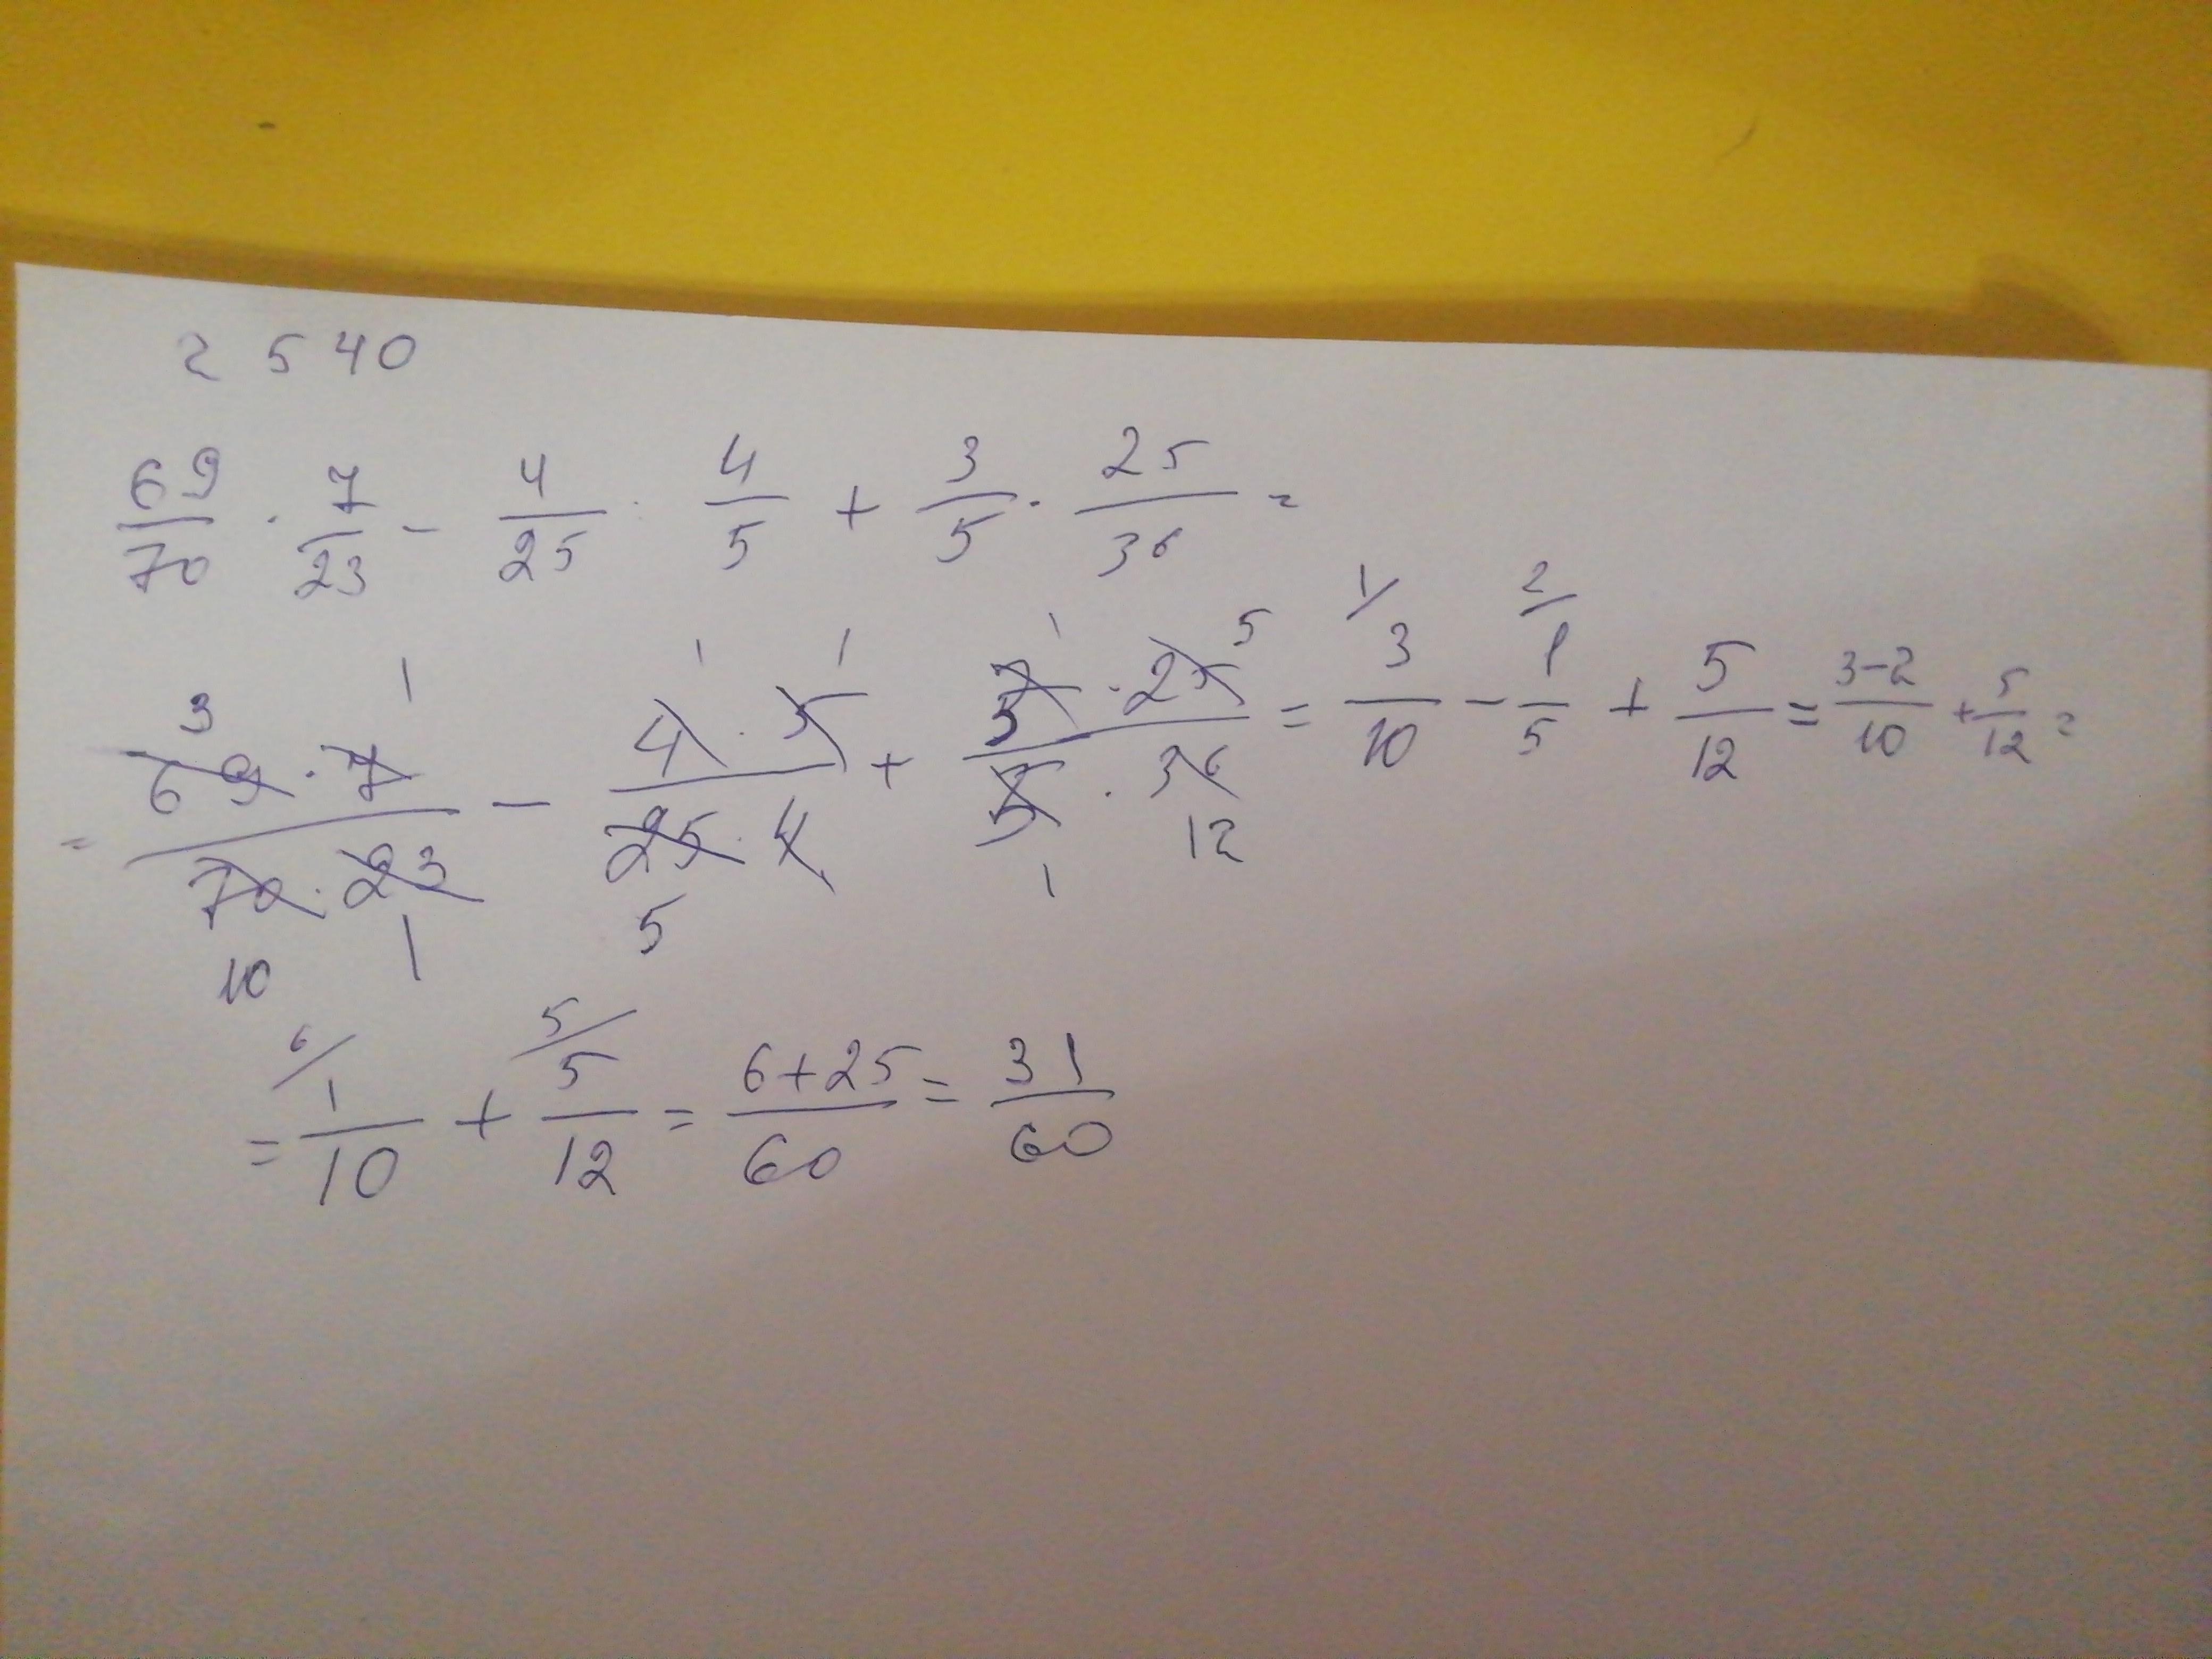 2 5 40
69/70 · 7/23 - 4/25 : 4/5 + 3/5 · 25/36 =
= 69 · 7 / 70 · 23 - 4 · 5 / 25 · 4 + 3 · 25 / 5 · 36 = 3/10 - 1/5 + 5/12 = 3-2/10 + 5/12 =
= 1/10 + 5/12 = 6+25/60 = 31/60